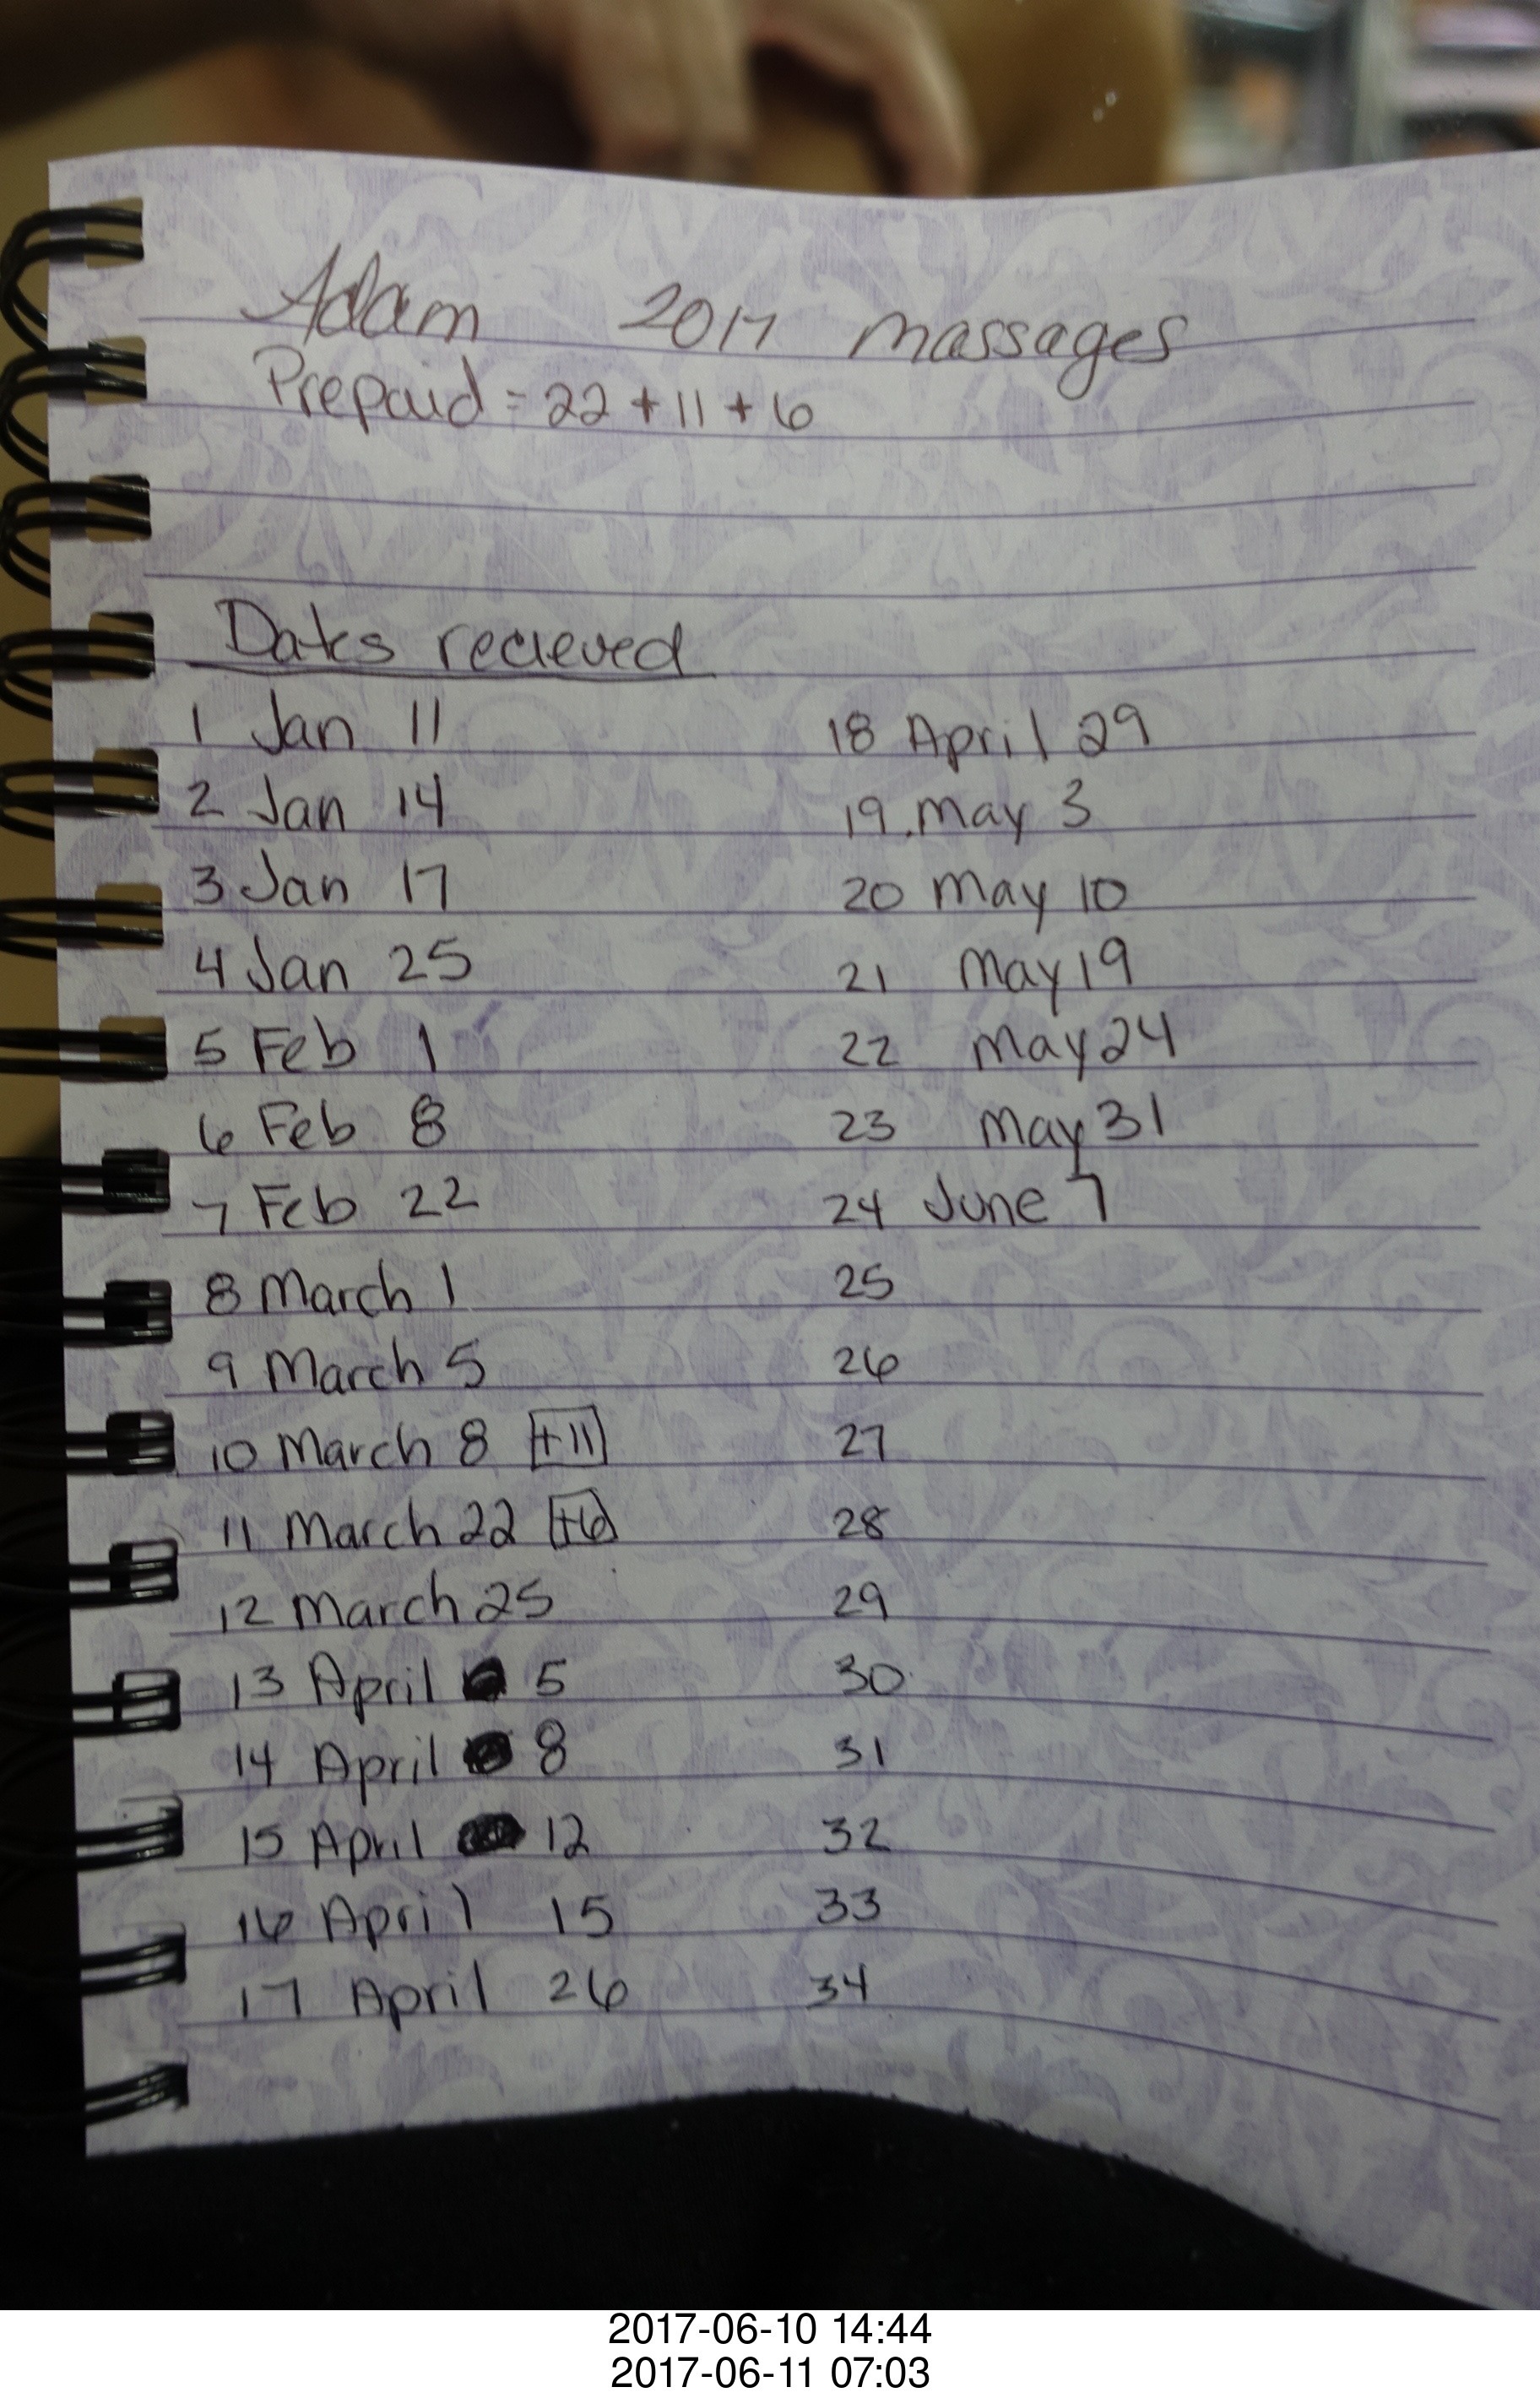 Adam 2017 massages
Prepaid = 22 + 11 + 6
Dates recieved
1 Jan 11
2 Jan 14
3 Jan 17
4 Jan 25
5 Feb 1
6 Feb 8
7 Feb 22
8 March 1
9 March 5
10 March 8 +11
11 March 22 +6
12 March 25
13 April 5
14 April 8
15 April 12
16 April 15
17 April 26
18 April 29
19. May 3
20 May 10
21 May 19
22 May 24
23 May 31
24 June 7
25
26
27
28
29
30
31
32
33
34
2017-06-10 14:44
2017-06-11 07:03